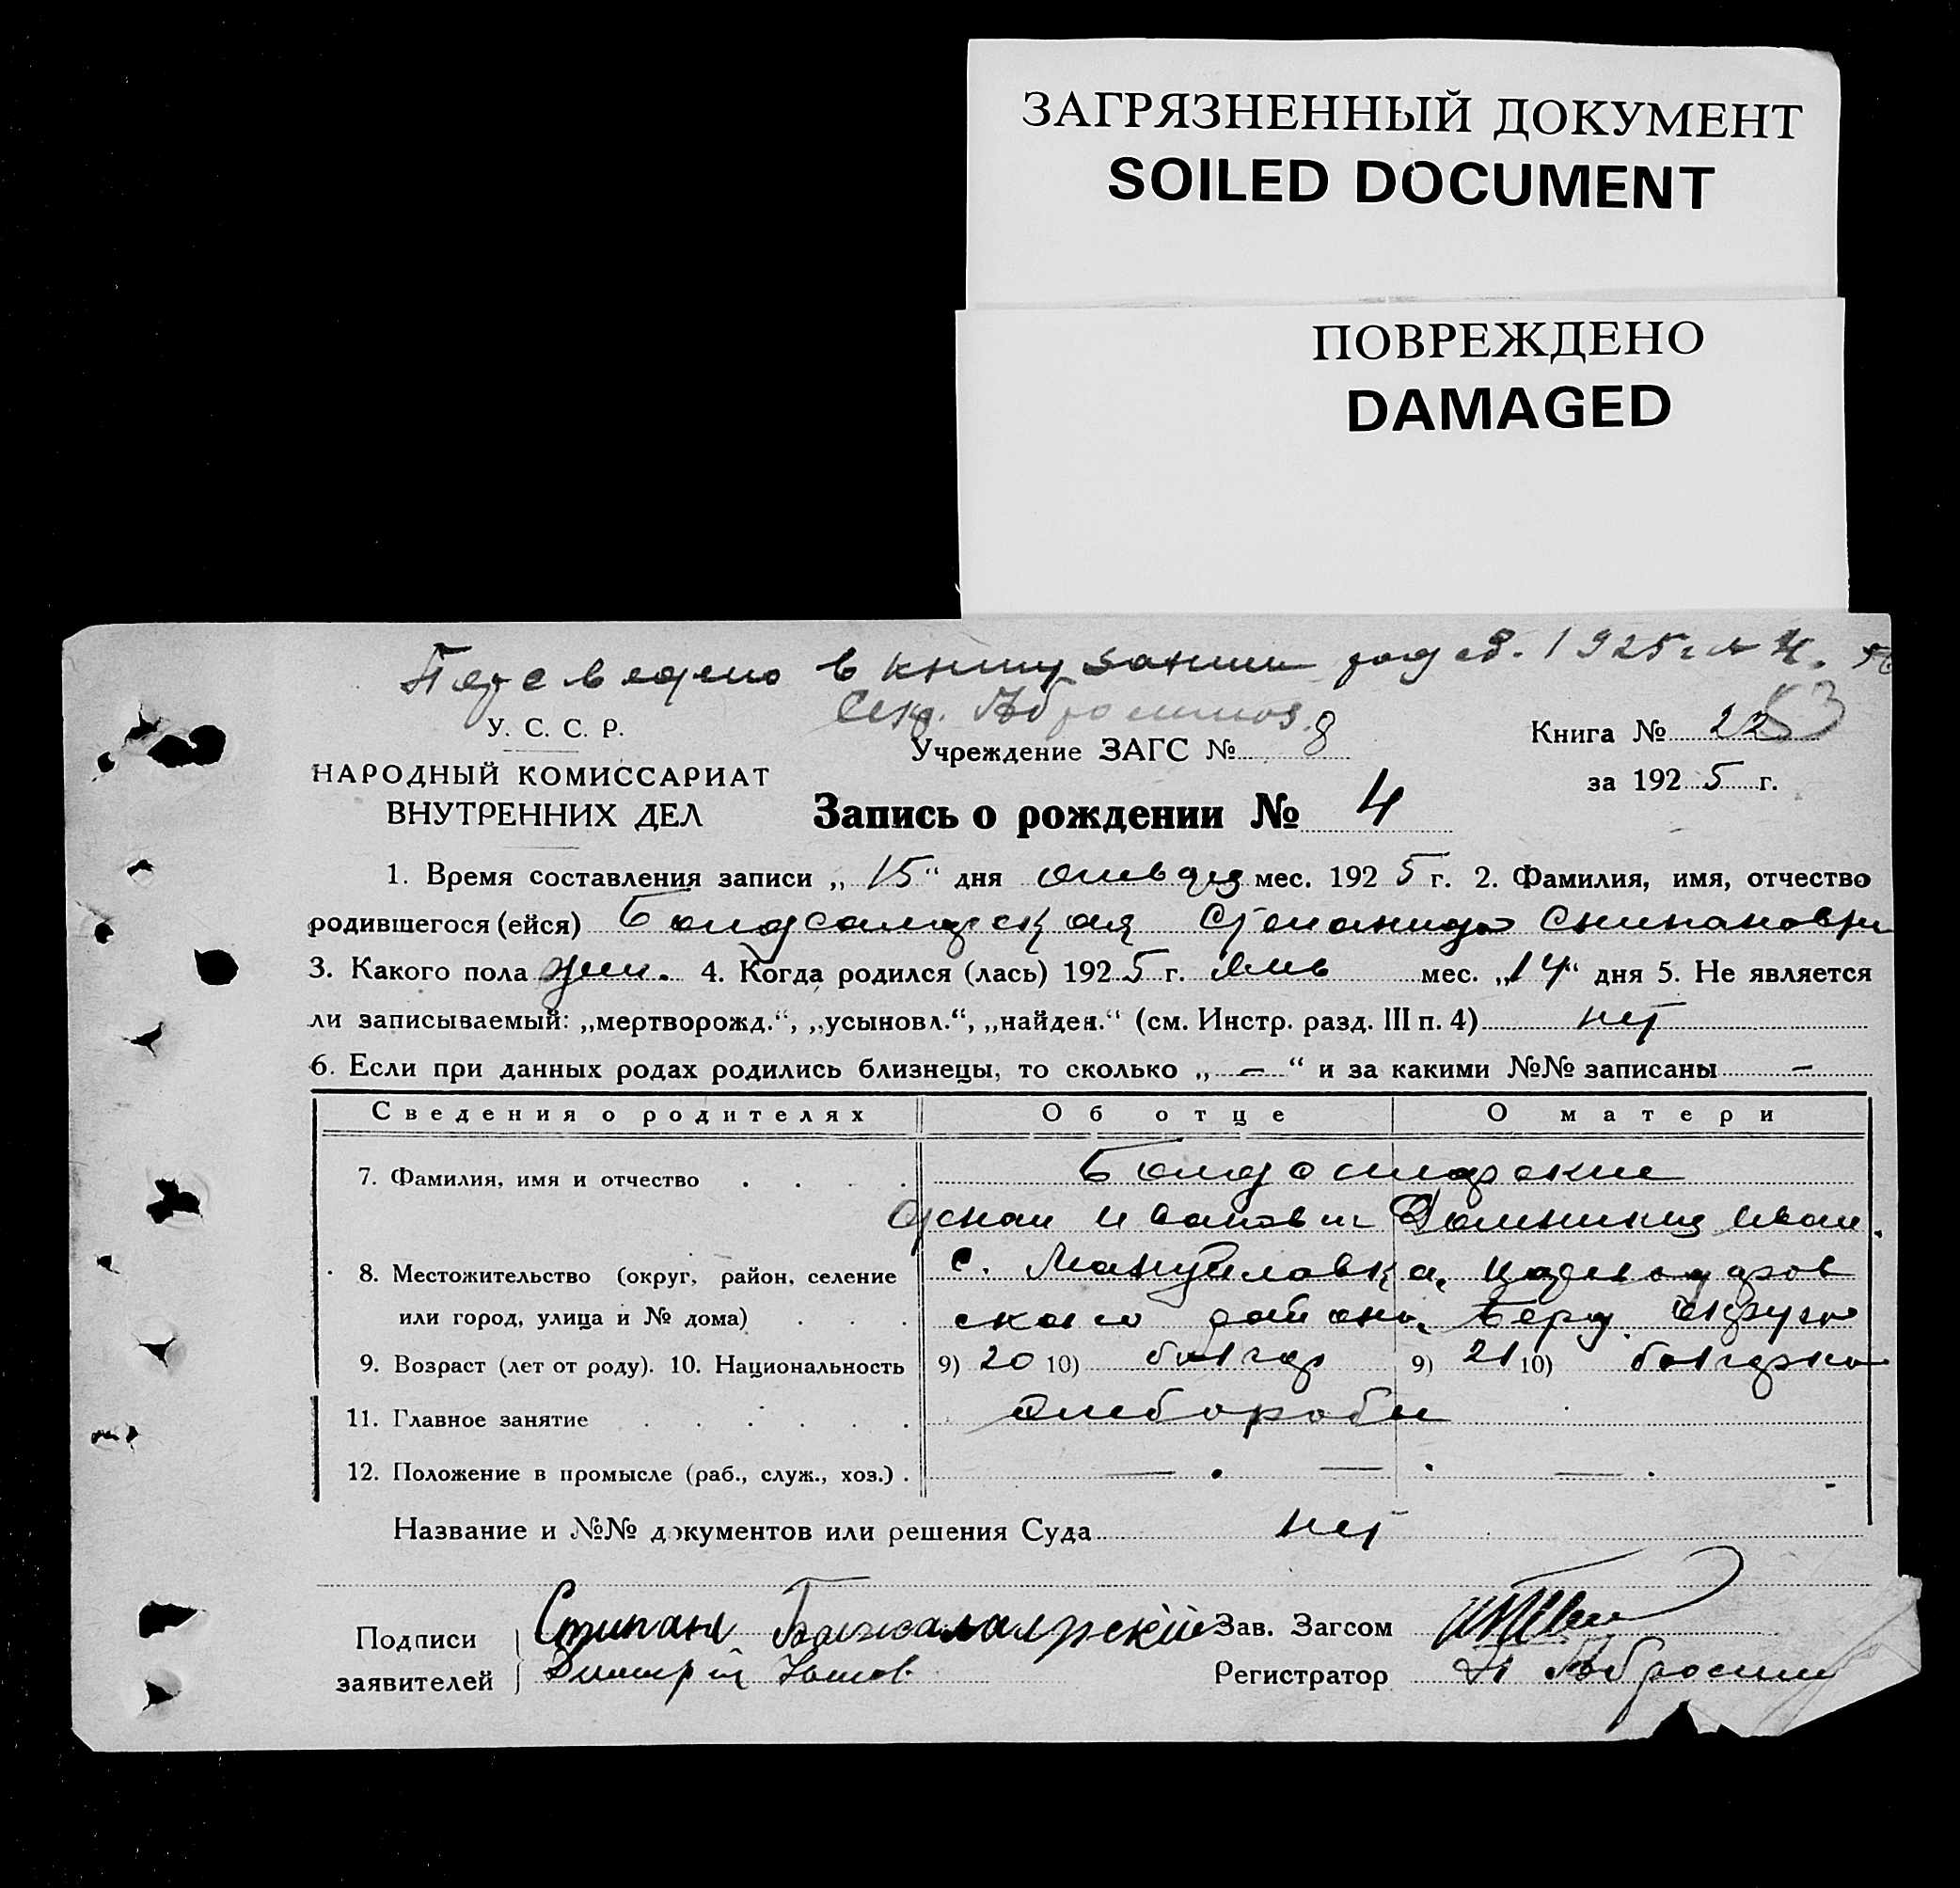 ЗАГРЯЗНЕННЫЙ ДОКУМЕНТ
SOILED DOCUMENT
ПОВРЕЖДЕНО
DAMAGED
Переведено в книгу записи 1925 г. № 4.
53
У. С. С. Р.
Учреждение ЗАГС № 8
Книга № 22
НАРОДНЫЙ КОМИССАРИАТ
ВНУТРЕННИХ ДЕЛ
за 1925 г.
Запись о рождении № 4
1. Время составления записи „15“ дня января мес. 1925 г. 2. Фамилия, имя, отчество
родившегося (ейся) Степанида
3. Какого пола жен. 4. Когда родился (лась) 1925 г. Янв мес. „14“ дня 5. Не является
ли записываемый: „мертворожд.“, „усыновл.“, „найден.“ (см. Инстр. разд. III п. 4) нет
6. Если при данных родах родились близнецы, то сколько „—“ и за какими №№ записаны —
Сведения о родителях Об отце О матери
7. Фамилия, имя и отчество
Иванович Домникия Иван.
8. Местожительство (округ, район, селение с. Мануйловка, Цареводаров
или город, улица и № дома) ского района, Берд. округа
9. Возраст (лет от роду). 10. Национальность 9) 20 10) болгар 9) 21 10) болгарка
11. Главное занятие хлеборобы
12. Положение в промысле (раб., служ., хоз.) — . — . — .
Название и №№ документов или решения Суда нет
Подписи
заявителей
Стипанъ
Димитрий
Зав. Загсом
Регистратор